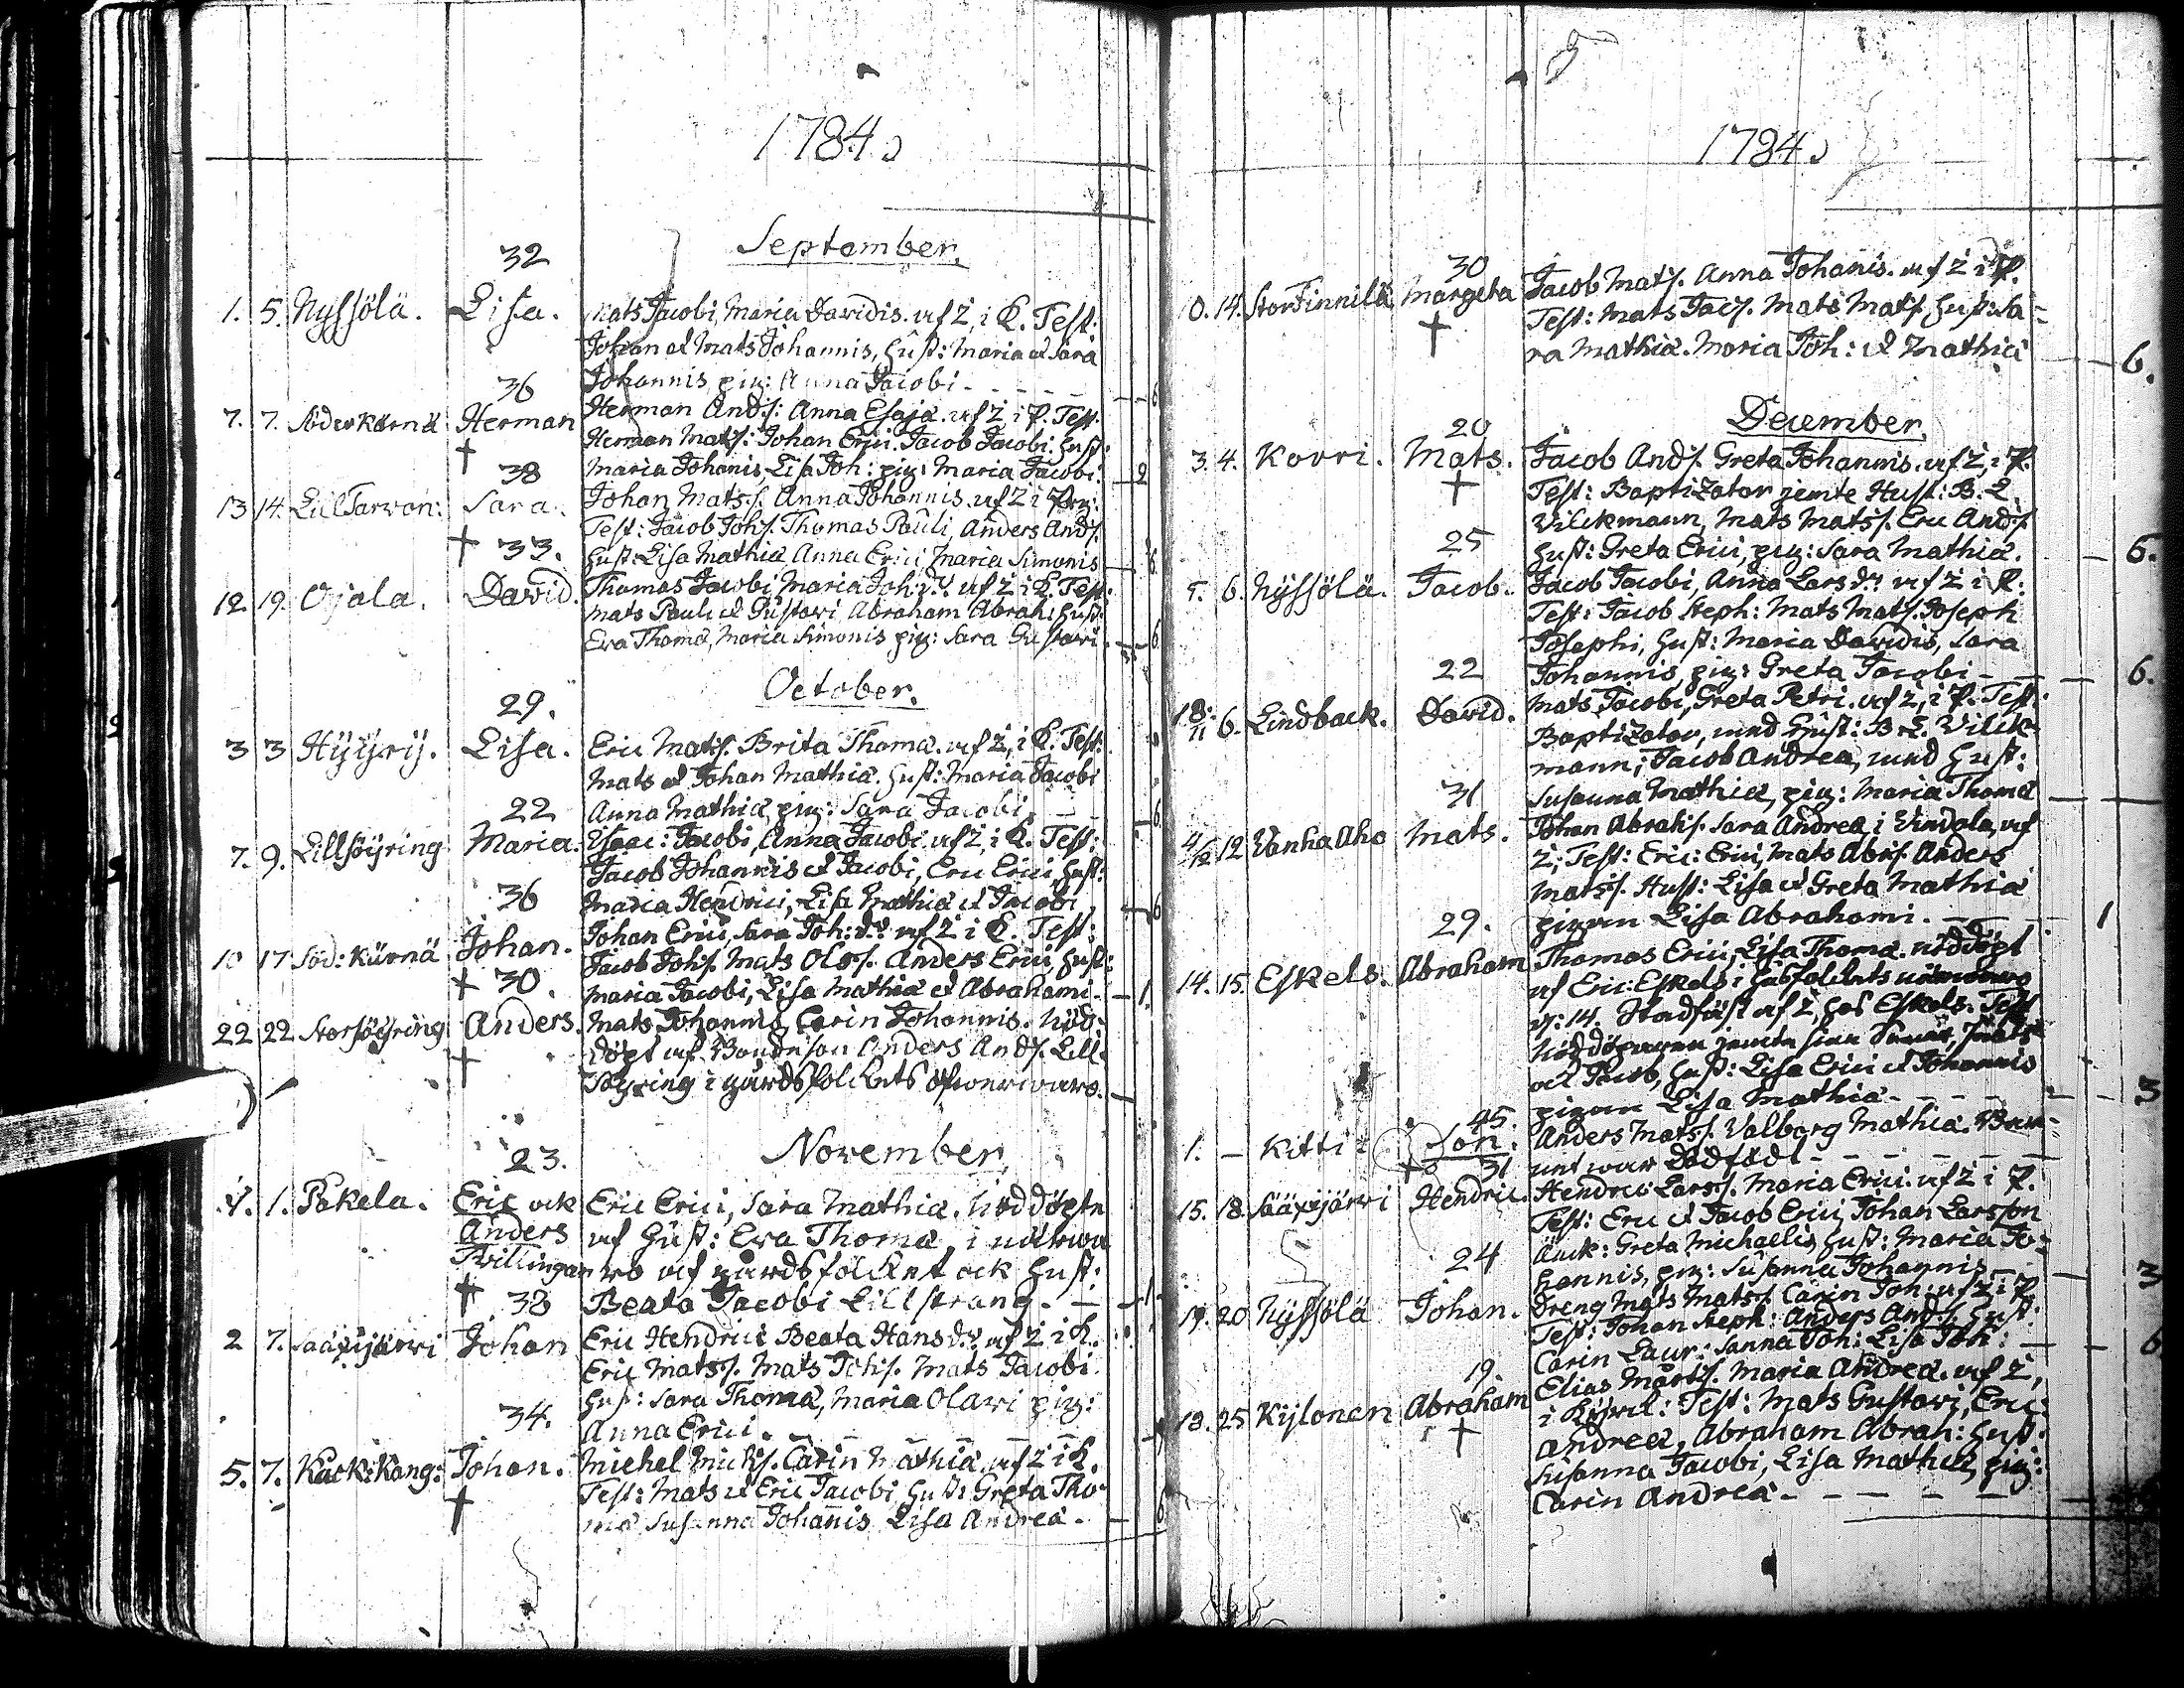 1784.
September.
32
1. 5. Nyssölä. Lisa. Mats Jacobi, Maria Davidis. af Z, i K. Test:
Johan et Mats Johannis, Hust: Maria et Sara
Johannis pig: Anna Jacobi - - - - 6
36
7. 7. Söderkårna Herman Herman Ands: Anna Esajæ. af Z i P. Test:
Herman Mats: Johan Erici. Jacob Jacobi. Hust:
† Maria Johanis, Lisa Joh: pig: Maria Jacobi. - 2
38
13 14. Lill Tarvon: Sara. Johan Matss. Anna Johannis. af Z i
Test: Jacob Johs. Thomas Pauli, Anders Ands.
† 33. Hust: Lisa Mathiæ Anna Erici Maria Simonis
12. 19. Ojala. David. Thomas Jacobi Maria Joh: dr. af Z i K. Test:
Mats Pauli et Gustavi Abraham Abrah: Hust:
Eva Thomæ, Maria Simonis pig: Sara Gustavi - 6
October.
29.
3 3 Hyÿry. Lisa. Eric Mats. Brita Thomæ. af Z, i K. Test:
Mats et Johan Mathiæ. Hust: Maria Jacobi
22 Anna Mathiæ, pig: Sara Jacobi - - 6
7. 9. Lillsöyring Maria. Isaac: Jacobi, Anna Jacobi. af Z, i K. Test:
Jacob Johannis et Jacobi, Eric Erici, Hust:
36 Maria Hendrici, Lisa Mathiæ et Jacobi 6
10 17 Söd: Kårnä Johan. Johan Erici, Sara Joh: dr. af Z i K. Test:
Jacob Johs. Mats Olofs. Anders Erici, Hust:
† 30. Maria Jacobi, Lisa Mathiæ et Abrahami. - 1.
22 22. Storsöyring Anders. Mats Johannis, Carin Johannis. Nöd-
† döpt af Bondeson Anders Ands. Lill-
Söyring i gårdsfolckets öfwerwaro. -
November.
23.
1. 1. Pakela. Eric ock Eric Erici, Sara Mathiæ. Nöddöpte
Anders af Hust: Eva Thomæ i närwa
Twillingar ro af gårdsfolcket ock Hust:
† 38 Beata Jacobi Lillstrang. - - 1
2 7. Sääxjärwi Johan Eric Hendrici Beata Hans dr. af Z i K.
Eric Matss. Mats Johs. Mats Jacobi.
Hust: Sara Thomæ, Maria Olavi pig:
34. Anna Erici. - - - - - -
5. 7. Kack: Kang: Johan. Michel Michs. Carin Mathiæ. af Z i K.
Test: Mats et Eric Jacobi Hust: Greta Tho-
† mæ Susanna Johanis Lisa Andreæ. - 6
1784.
30
0. 14. Storfinnilä Margeta Jacob Mats. Anna Johanis. af Z i P.
† Test: Mats Jacs. Mats Mats. Hust: Sa-
ra Mathiæ. Maria Joh: et Mathiæ - 6.
December.
20
3. 4. Korri. Mats. Jacob Ands. Greta Johannis. af Z, i P.
† Test: Baptizator jemte Hust: B. L.
Wilckmann, Mats Matss. Eric Ands.
25 Hust: Greta Erici, pig: Sara Mathiæ. - 6.
5. 6. Nyssölä. Jacob. Jacob Jacobi, Anna Lars dr. af Z i K:
Test: Jacob Steph: Mats Mats. Joseph
Josephi, Hust: Maria Davidis, Sara
22 Johannis, pig: Greta Jacobi - - 6.
18./11 6. Lindback. David. Mats Jacobi, Greta Petri. af Z, i P. Test:
Baptizator, med Hust: B. L. Wilck-
mann; Jacob Andreæ, med Hust:
31 Susanna Mathiæ, pig: Maria Thomæ -
4/12 12. Wanha Aho Mats. Johan Abrahs. Sara Andreæ i Vindala, af
Z; Test: Eric: Erici, Mats Abrs. Anders
Matss. Hust: Lisa et Greta Mathiæ
29. pigan Lisa Abrahami. - - - 1
14. 15. Eskels. Abraham Thomas Erici, Lisa Thomæ. nöddöpt
af Eric: Eskels i husfolckets närwaro
d: 14. Stadfäst af Z, hos Eskels. Test
Nöddöparen jemte sina Mats
och Jacob, Hust: Lisa Erici et Johannis
pigan Lisa Mathiæ - - - - 3
45.
1. - Kitti: Son: Anders Matss. Valborg Mathiæ. Bar-
† 31 net war Dödfödt - - - - -
15. 18. Sääxjärwi Hendric. Hendric: Larss. Maria Erici. af Z i P.
Test: Eric et Jacob Erici, Johan Larsson
24 Änck: Greta Michaelis, Hust: Maria Jo-
hannis, pig: Susanna Johannis - - 3
19. 20 Nyssölä Johan. Dreng Mats Matss. Carin Joh: af Z i P.
Test: Johan Steph: Anders Ands. Hust:
Carin Laur: Sanna Joh: Lisa Joh: - - 6
19.
18. 25 Kylönen Abraham Elias Mårts. Maria Andreæ. af Z,
† i Test: Mats Gustavi, Eric:
Andreæ, Abraham Abrah: Hust:
Susanna Jacobi, Lisa Mathiæ, pig:
Carin Andreæ - - - - -